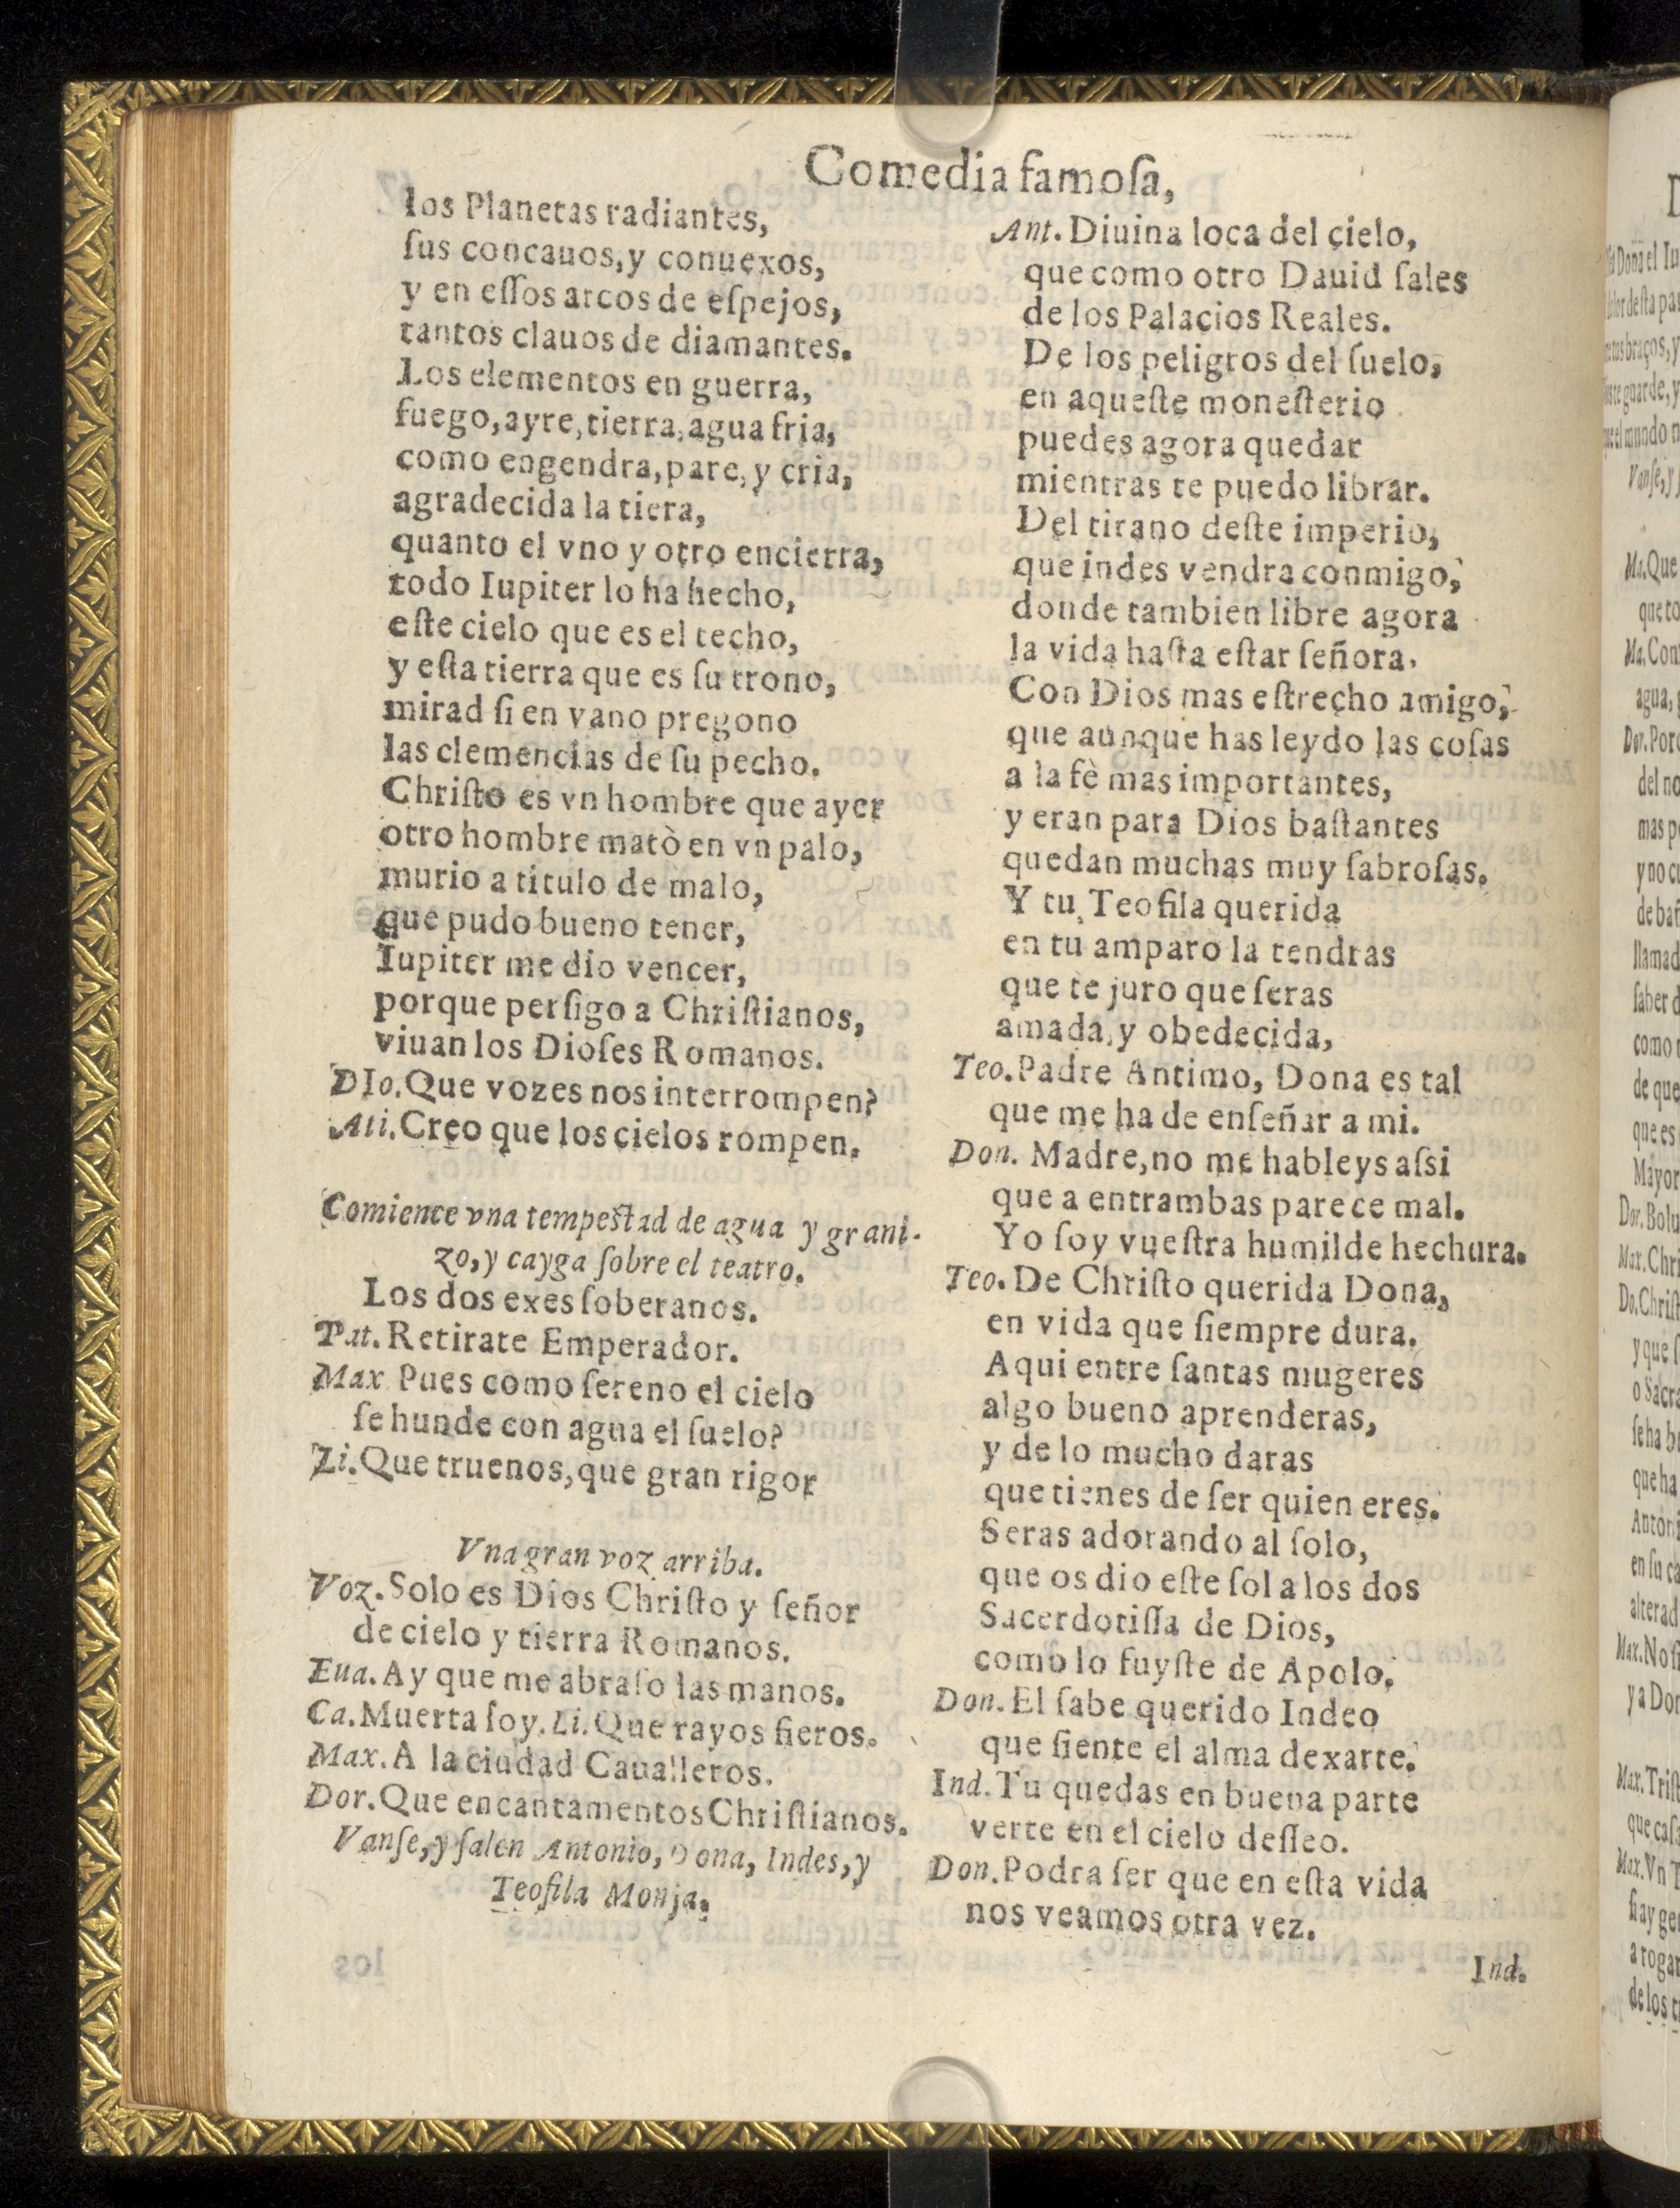 Comedia famoſa,
los Planetas radiantes,
ſus concauos, y conuexos,
y en eſſos arcos de eſpejos,
tantos clauos de diamantes.
Los elementos en guerra,
fuego, ayre, tierra, agua fria,
como engendra, pare, y cria,
agradecida la tiera,
quanto el vno y otro encierra,
todo Iupiter lo ha hecho,
eſte cielo que es el techo,
y eſta tierra que es ſu trono,
mirad ſi en vano pregono
las clemencias de ſu pecho.
Chriſto es vn hombre que ayer
otro hombre matò en vn palo,
murio a titulo de malo,
que pudo bueno tener,
Iupiter me dio vencer,
porque perſigo a Chriſtianos,
viuan los Dioſes Romanos.
DIo. Que vozes nos interrompen?
Ati. Creo que los cielos rompen.
Comience vna tempeſtad de agua y grani-
zo, y cayga ſobre el teatro.
Los dos exes ſoberanos.
Pat. Retirate Emperador.
Max Pues como ſereno el cielo
ſe hunde con agua el ſuelo?
Li. Que truenos, que gran rigor
Vna gran voz arriba.
Voz. Solo es Dios Chriſto y ſeñor
de cielo y tierra Romanos.
Eua. Ay que me abraſo las manos.
Ca. Muerta ſoy. Li. Que rayos fieros.
Max. A la ciudad Caualleros.
Dor. Que encantamentos Chriſtianos.
Vanſe, y ſalen Antonio, Dona, Indes, y
Teofila Monja.
Ant. Diuina loca del çielo,
que como otro Dauid ſales
de los Palacios Reales.
De los peligros del ſuelo,
en aqueſte moneſterio
puedes agora quedar
mientras te puedo librar.
Del tirano deſte imperio,
que indes vendra conmigo,
donde tambien libre agora
la vida haſta eſtar ſeñora.
Con Dios mas eſtrecho amigo,
que aunque has leydo las coſas
a la fè mas importantes,
y eran para Dios baſtantes
quedan muchas muy ſabroſas.
Y tu, Teofila querida
en tu amparo la tendras
que te juro que ſeras
amada, y obedecida,
Teo. Padre Antimo, Dona es tal
que me ha de enſeñar a mi.
Don. Madre, no me hableys aſsi
que a entrambas parece mal.
Yo ſoy vueſtra humilde hechura.
Teo. De Chriſto querida Dona,
en vida que ſiempre dura.
Aqui entre ſantas mugeres
algo bueno aprenderas,
y de lo mucho daras
que tienes de ſer quien eres.
Seras adorando al ſolo,
que os dio eſte ſol a los dos
Sacerdotiſſa de Dios,
como lo fuyſte de Apolo.
Don. El ſabe querido Indeo
que ſiente el alma dexarte.
Ind. Tu quedas en buena parte
verte en el cielo deſſeo.
Don. Podra ſer que en eſta vida
nos veamos otra vez.
Ind.